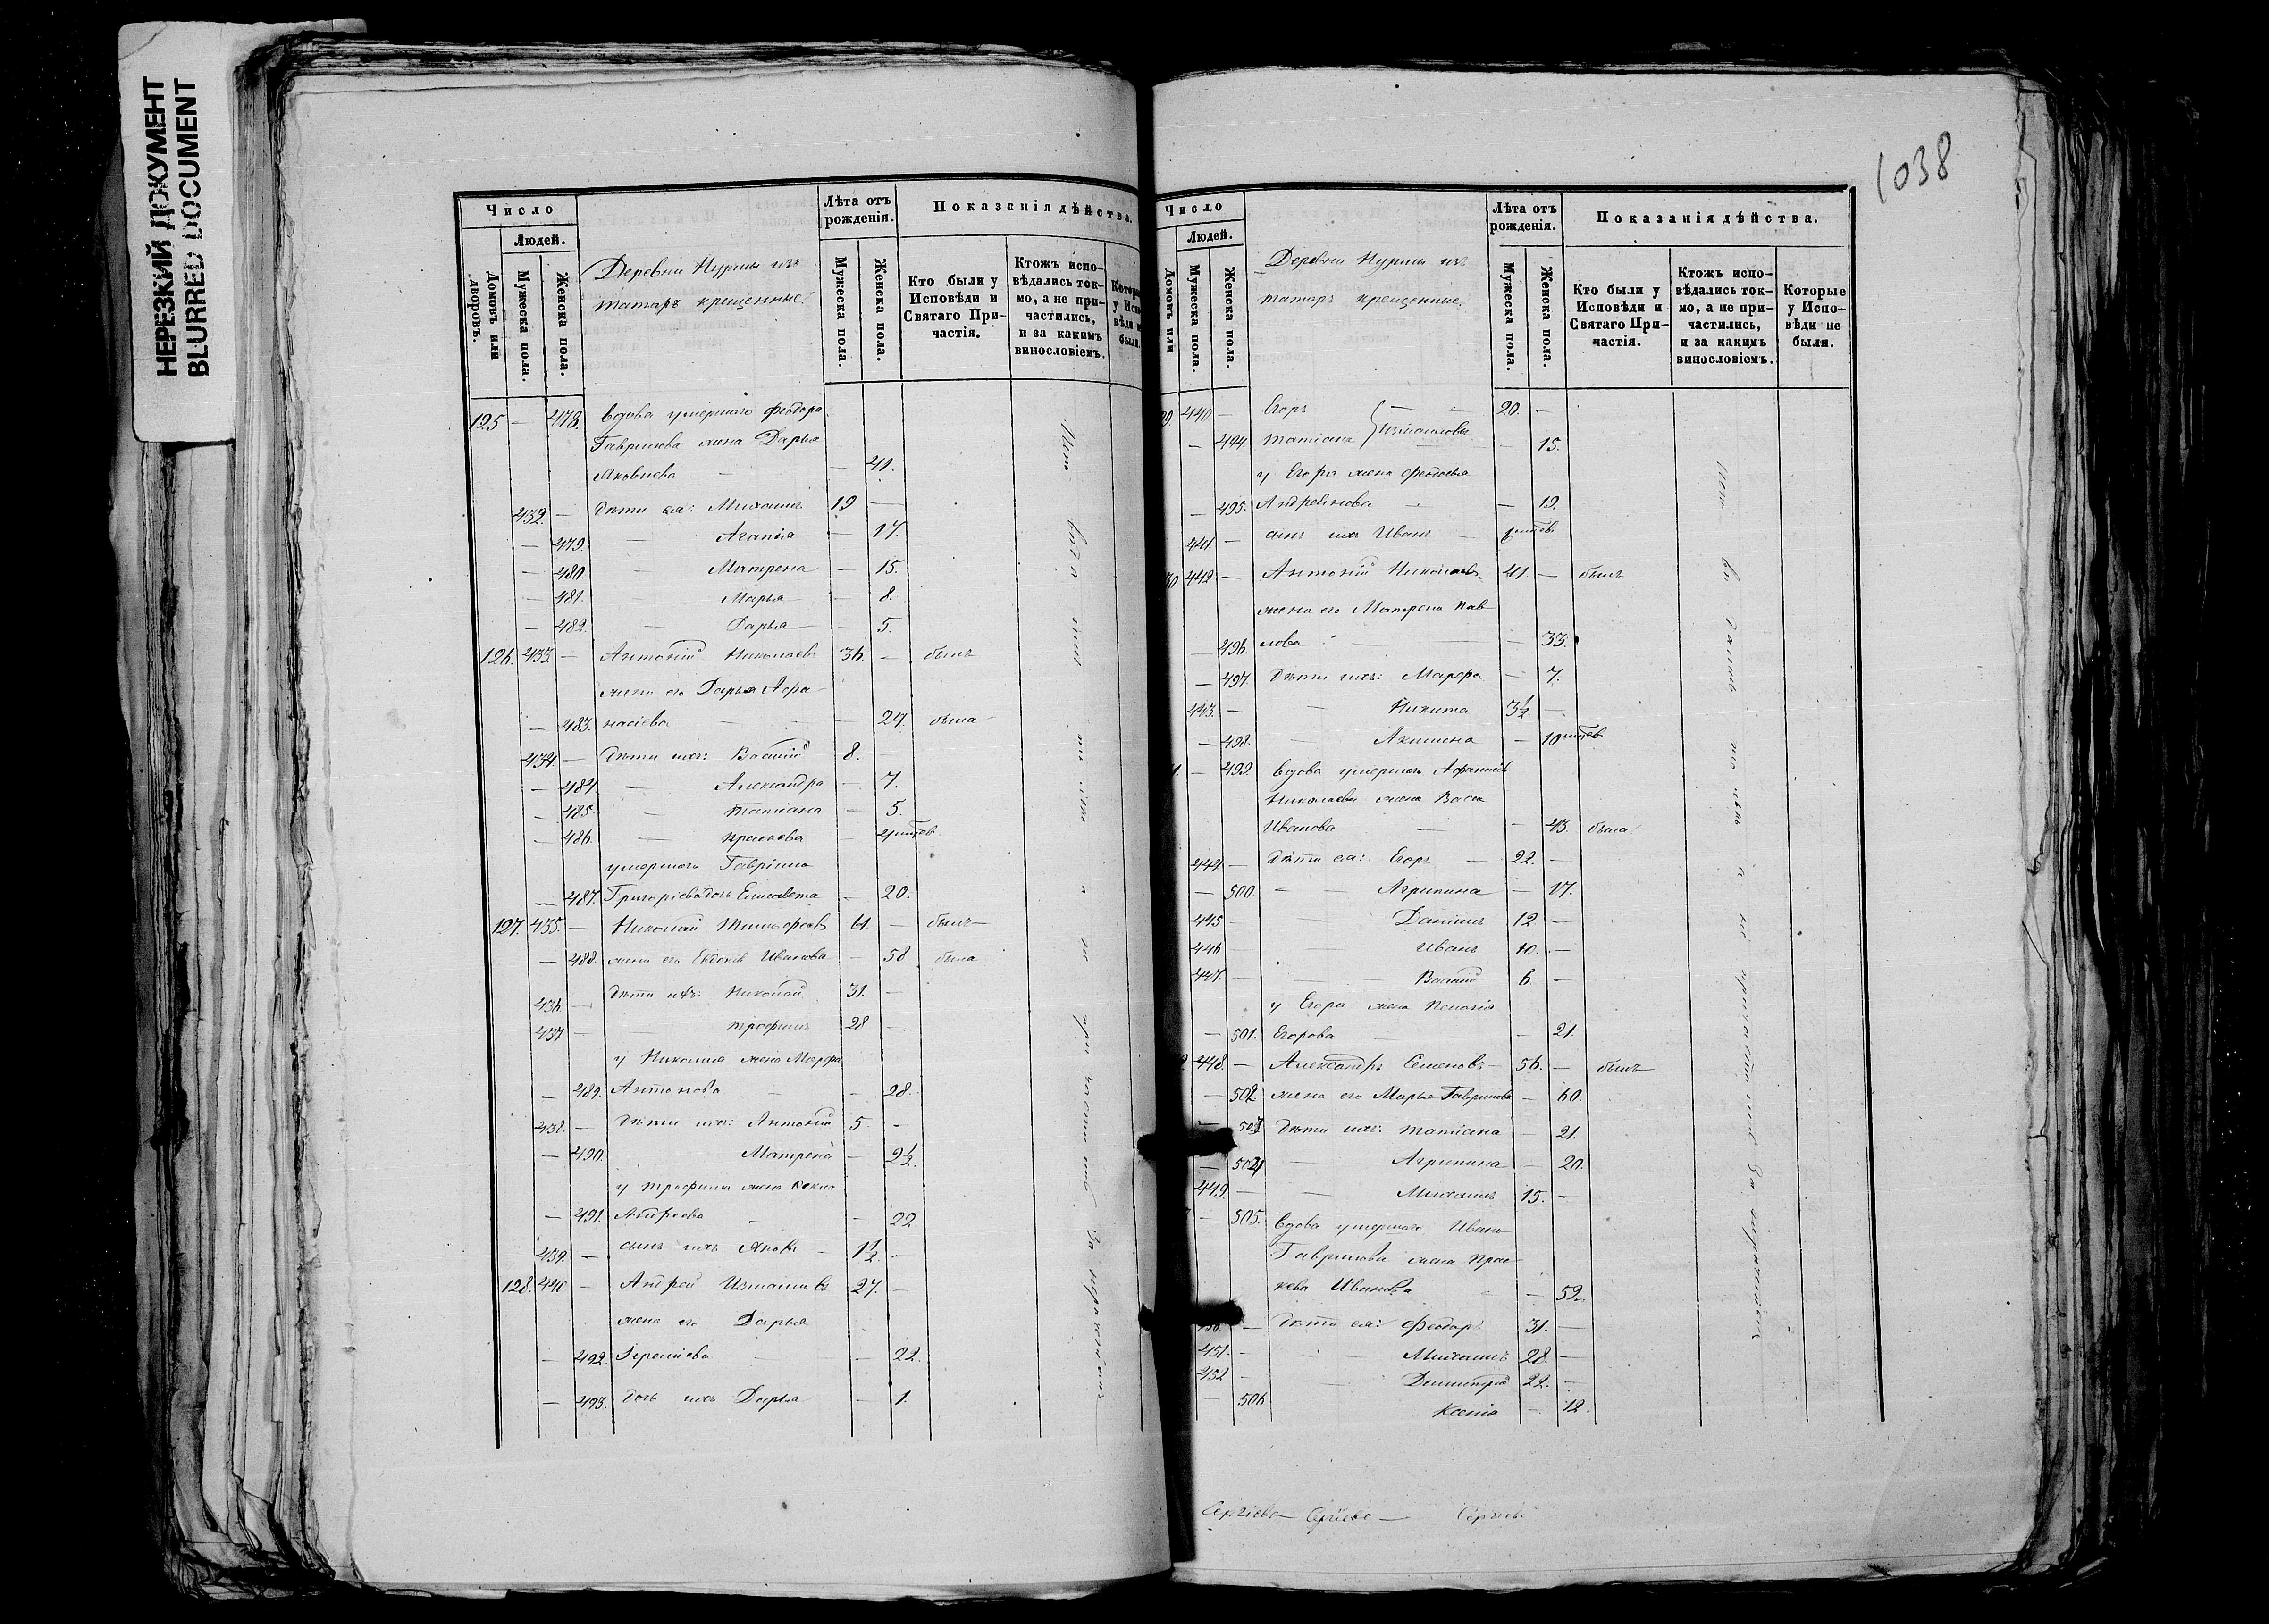 НЕРЕЗКИЙ ДОКУМЕНТ
BLURRED DOCUMENT
Число
Людей.
Домовъ или дворовъ.
Мужеска пола.
Женска пола.
Деревни Нурмы изъ
татаръ крещенные.
Лѣта отъ рожденія.
Мужеска пола.
Женска пола.
Показанія дѣйства.
Кто были у Исповѣди и Святаго Причастія.
Ктожъ исповѣдались токмо, а не причастились, и за какимъ винословіемъ.
Которые у Исповѣди не были.
125 — 478. вдова умершаго Феодора
Гаврилова жена Дарья
Яковлева — — 41.
432. — дѣти ея: Михаилъ 19 —
— 479. — Агапія — 17.
— 480. — Матрена — 15.
— 481. Марья — 8.
— 482. — Дарья — 5.
126. 433 — Антоній Николаевъ 36. — былъ
жена его Дарья Афа-
— 483. насіева — — 27. была
434. — дѣти ихъ: Василій 8.
— 484 — Александра — 7.
— 485. — Татіана — 5.
— 486. — Праскева — 4
умершаго Гавріила
— 487. Григоріева дочь Елисавета — 20.
127. 435. — Николай Тимофеевъ 61. — былъ
— 488. жена его Евдокія Иванова — 58 была
436. — дѣти ихъ: Николай 31. —
437 — — Трофимъ 28 —
у Николая жена Марфа
— 489. Антонова — — 28.
438. — дѣти ихъ: Антоній 5 —
— 490. Матрена — 2½.
у Трофима жена Фекла
— 491. Андреева — — 22
439. — сынъ ихъ Яковъ — 1½ —
128. 440 — Андрей Измаиловъ 27. —
жена его Дарья
— 492. — — 22.
— 493. дочь ихъ Дарья — 1.
1038
Число
Людей.
Домовъ или
Мужеска пола.
Женска пола.
Деревни Нурмы изъ
татаръ крещенные.
Лѣта отъ рожденія.
Мужеска пола.
Женска пола.
Показанія дѣйства.
Кто были у Исповѣди и Святаго Причастія.
Ктожъ исповѣдались токмо, а не причастились, и за какимъ винословіемъ.
Которые у Исповѣди не были.
440 — Егоръ — 20. —
— 494. Татіана Измаиловы — 15.
у Егора жена Феодосья
— 495. Андреянова — — 19.
441 — сынъ ихъ Иванъ —
442 — Антоній Николаевъ 41. — былъ
жена его Матрена Пав-
— 496. лова — — 33.
— 497. дѣти ихъ: Марфа — 7.
443. — — Никита 3½. —
— 498. — Акилина — 10
— 499. вдова умершаго Афанасія
Николаева жена Васса
Иванова — — 43. была
444 — дѣти ея: Егоръ — 22. —
— 500. — — Агрипина — 17.
445 — — Даніилъ 12 —
446 — — Иванъ 10. —
447. — — Василій 6 —
у Егора жена Пелагія
— 501. Егорова — 21.
448. — Александръ Семеновъ — 56. — былъ
— 502 жена его Марья Гаврилова — 60.
— 503 дѣти ихъ: Татіана — 21.
— 504 — Агрипина — 20.
449 — — Михаилъ 15. —
— 505. вдова умершаго Ивана
Гаврилова жена Прас-
кева Иванова — 59.
— дѣти ея: Феодоръ 31. —
451. — — Михаилъ 28. —
452 — — Димитрій 22. —
— 506 Ксенія — 12.
Сергіева — Сергіева — Сергіевъ